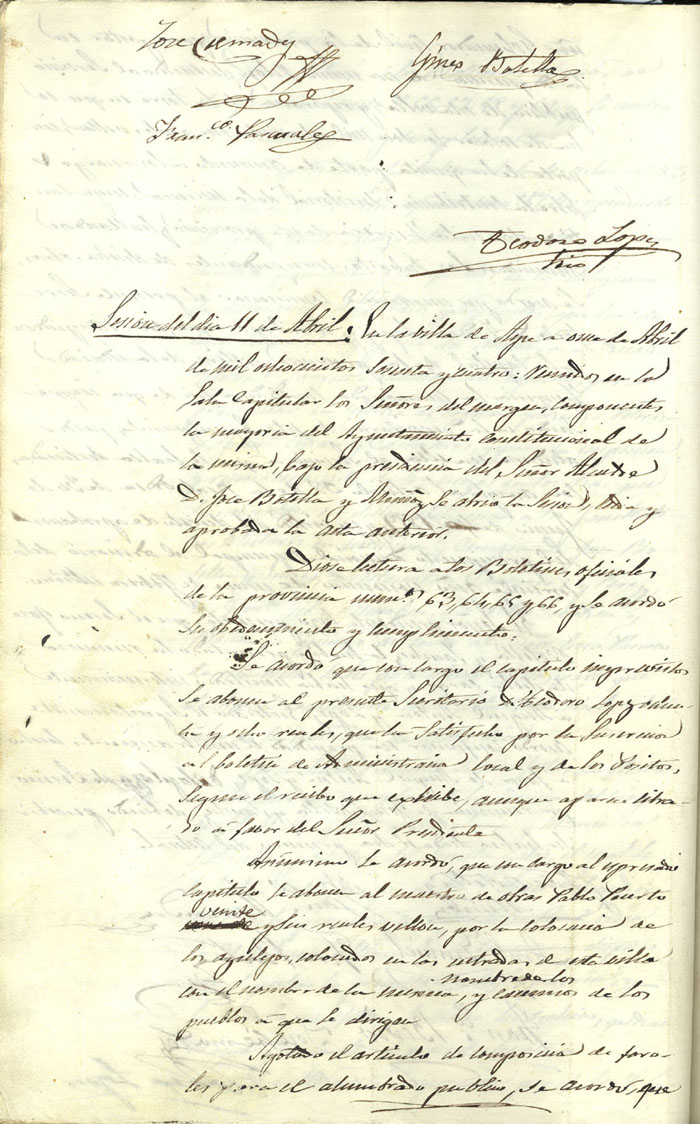 Jose Cremades
Gines Botella
Fran.co Pascual
Teodoro Lopez
Srio
Sesion del dia 11 de Abril. En la villa de Aspe a once de Abril
de mil ochocientos sesenta y cuatro: Reunidos en la
Sala Capitular los Señores del margen, componentes
la mayoria del Ayuntamiento constitucional de
la misma, bajo la presidencia del Señor Alcalde
D. Jose Botella y Muñoz, se abrio la sesion, leida y
aprobada la acta anterior.
Diose lectura a los Boletines oficiales
de la provincia num.s 63, 64, 65 y 66, y se acordó
su obedecimiento y cumplimiento.
Se acordo que con cargo el capitulo imprevistos
se abone al presente Secretario D. Teodoro Lopez ochen-
ta y ocho reales, que ha satisfecho por la suscricion
al boletin de Administracion local y de los Positos,
segun el recibo que exhibe, aunque aparece libra-
do a favor del Señor Presidente
Asimismo se acordó, que con cargo al espresado
Capitulo se abone al maestro de obras Pablo Puerto
veinte
y seis reales vellon, por la colocacion de
los azulejos, colocados en las entradas de esta villa
nombre de los
con el nombre de la misma, y caminos de los
pueblos a que se dirigen
Agotado el articulo de composicion de faro-
les para el alumbrado publico, se acordó, que